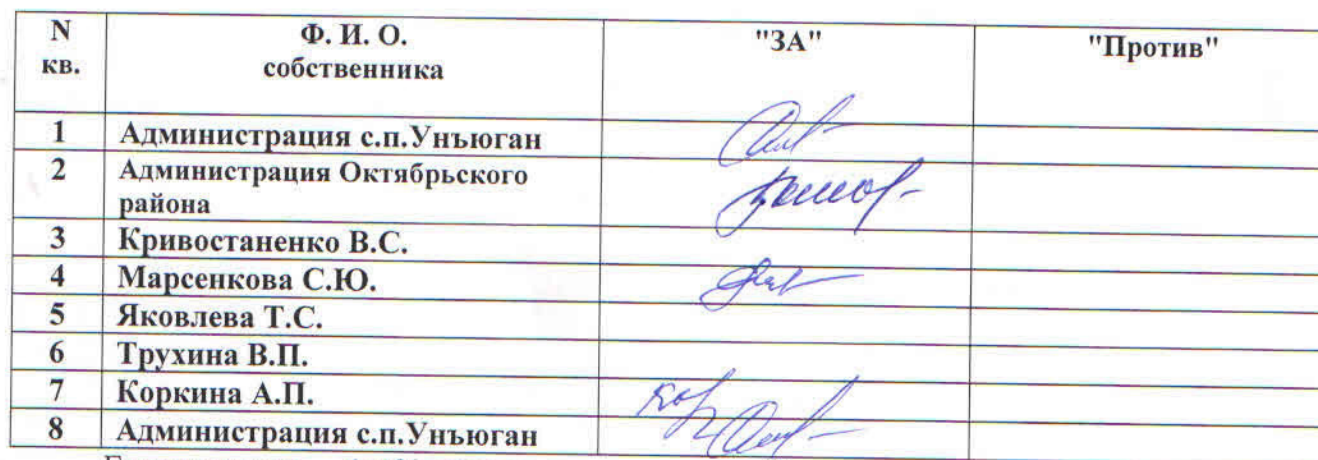 N кв. Ф. И. О. собственника "ЗА" "Против"
1 Администрация с.п.Унъюган
2 Администрация Октябрьского
района
3 Кривостаненко В.С.
4 Марсенкова С.Ю.
5 Яковлева Т.С.
6 Трухина В.П.
7 Коркина А.П.
8 Администрация с.п.Унъюган